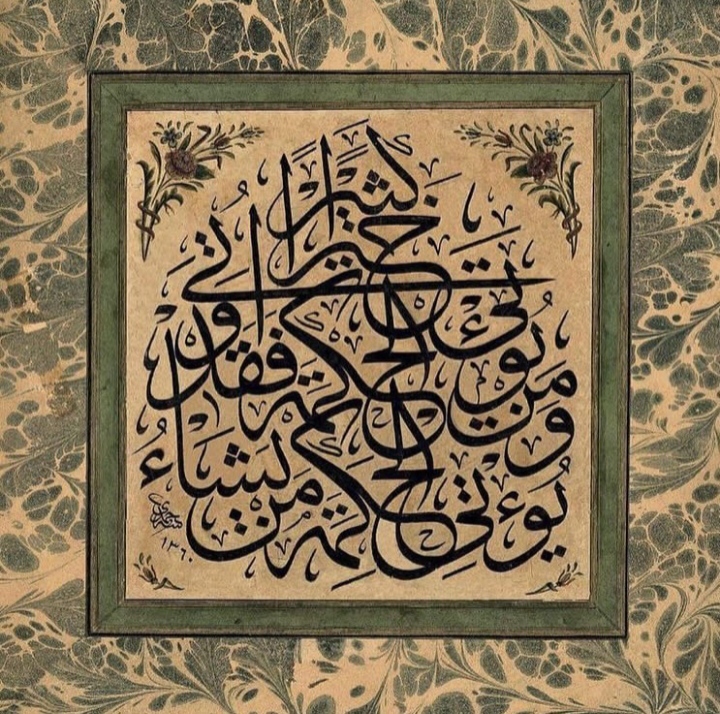 يُؤْتِي الْحِكْمَةَ مَنْ يَشَاءُ
وَمَنْ يُؤْتَ الْحِكْمَةَ فَقَدْ أُوتِيَ
خَيْرًا كَثِيرًا
١٣٦٠